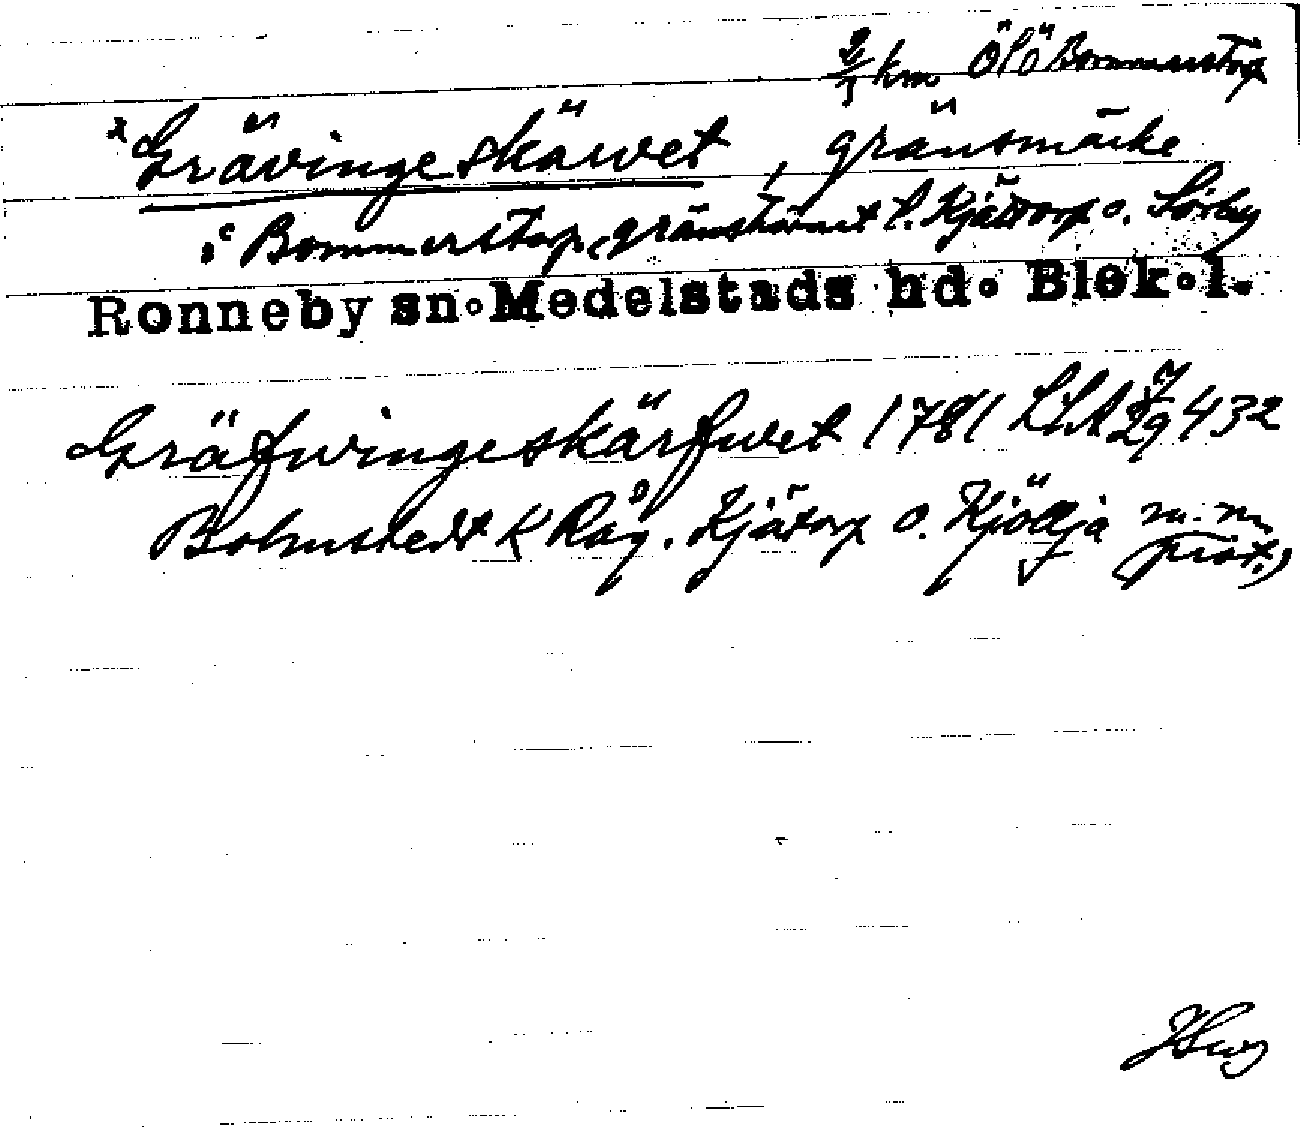 km ÖLÖ Bommerstorp
x Grävingeskärvet, gränsmärke
i Bommerstorp, gränshörnet t. Kjätorp o. Sörby
Ronneby sn. Medelstads hd. Blek.l.
Gräfwingeskärfwet 1781 LSA 432
Bohmstedt K Råg. Kjätorp o. Kjöllja m.m.
prot.)